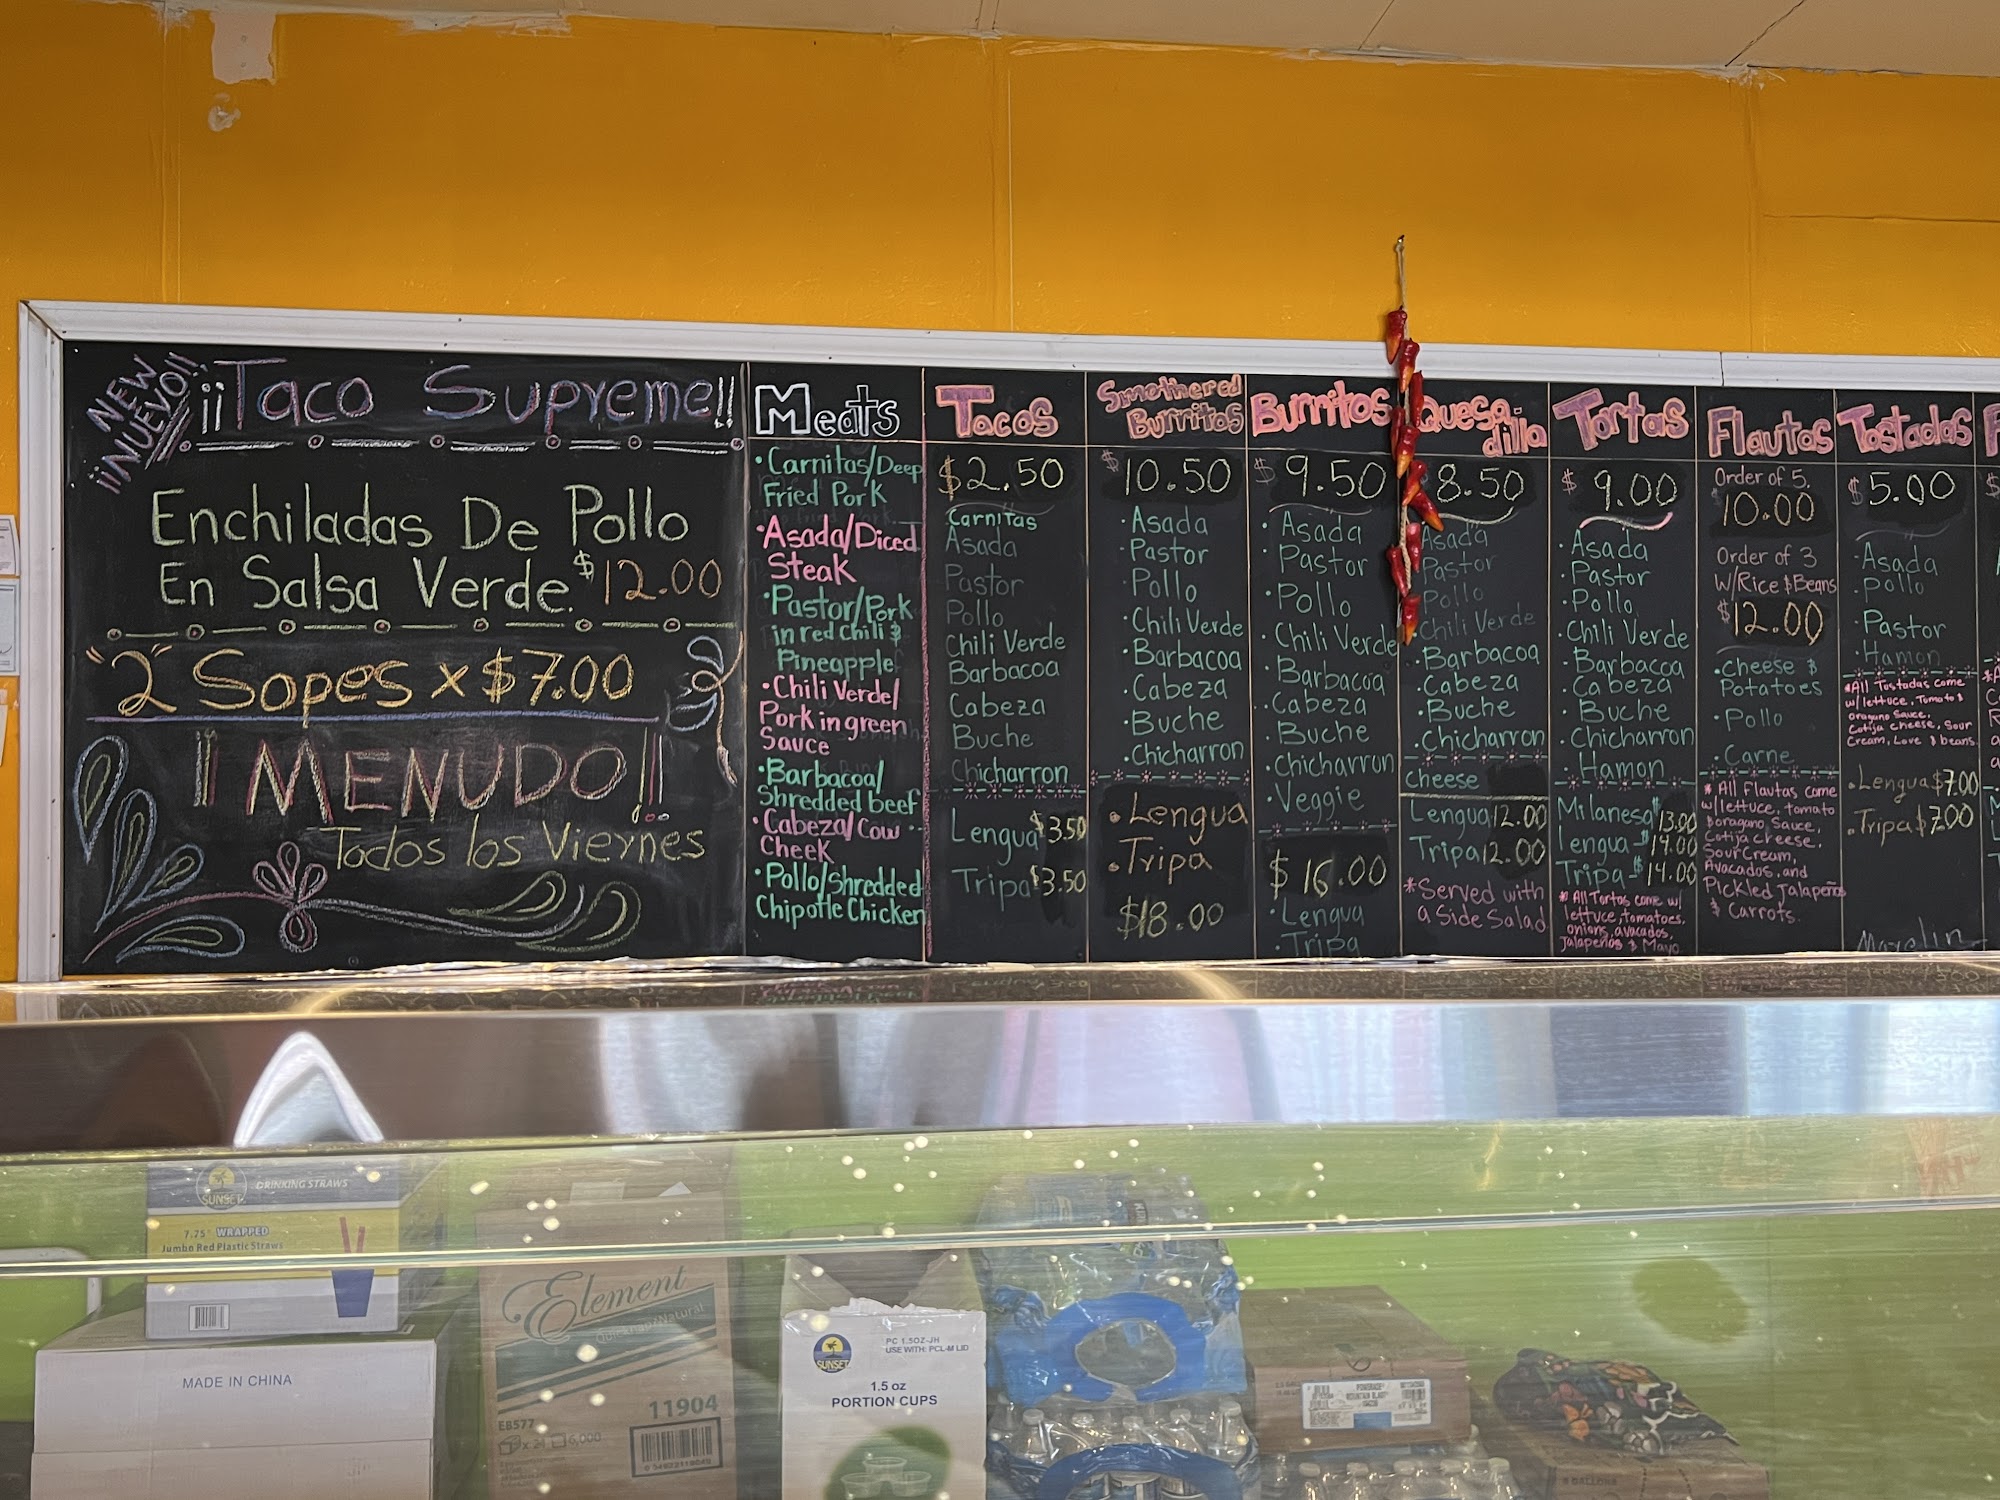 NEW
¡¡NUEVO!!
¡¡Taco Supreme!!
Enchiladas De Pollo
En Salsa Verde. $12.00
"2" Sopes x $7.00
¡MENUDO!!
Todos los Viernes
Meats
• Carnitas/Deep
Fried Pork
• Asada/Diced
Steak
• Pastor/Pork
in red chili &
Pineapple
• Chili Verde/
Pork in green
Sauce
• Barbacoa/
Shredded beef
• Cabeza/Cow
Cheek
• Pollo/Shredded
Chipotle Chicken
Tacos
$2.50
Carnitas
Asada
Pastor
Pollo
Chili Verde
Barbacoa
Cabeza
Buche
Chicharron
Lengua $3.50
Tripa $3.50
Smothered
Burritos
$10.50
• Asada
• Pastor
• Pollo
• Chili Verde
• Barbacoa
• Cabeza
• Buche
• Chicharron
• Lengua
• Tripa
$18.00
Burritos
$9.50
• Asada
• Pastor
• Pollo
• Chili Verde
• Barbacoa
• Cabeza
• Buche
• Chicharron
• Veggie
$16.00
• Lengua
• Tripa
Quesadilla
8.50
Asada
Pastor
Pollo
Chili Verde
• Barbacoa
• Cabeza
• Buche
• Chicharron
Cheese
Lengua 12.00
Tripa 12.00
*Served with
a Side Salad
Tortas
$9.00
• Asada
• Pastor
• Pollo
• Chili Verde
• Barbacoa
• Cabeza
• Buche
• Chicharron
• Hamon
Milanesa $13.00
Lengua - $14.00
Tripa - $14.00
* All Tortas come w/
lettuce, tomatoes,
onions, avacados,
Jalapeños & Mayo
Flautas
Order of 5.
$10.00
Order of 3
W/Rice & Beans
$12.00
• Cheese &
Potatoes
• Pollo
• Carne
* All Flautas come
w/lettuce, tomato
&oragano Sauce,
Cotija cheese,
Sour Cream,
Avacados, and
Pickled jalapeños
& Carrots.
Tostadas
$5.00
• Asada
• Pollo
• Pastor
• Hamon
*All Tostadas come
w/lettuce, Tomato &
oragano Sauce,
Cotija cheese, Sour
Cream, Love & beans.
• Lengua $7.00
• Tripa $7.00
Marelin
SUNSET
DRINKING STRAWS
7.75" WRAPPED
Jumbo Red Plastic Straws
MADE IN CHINA
Element
11904
EB577
x 24 6,000
SUNSET
PC 1.5OZ-JH
USE WITH: PCL-M LID
1.5 oz
PORTION CUPS
5 GALLONS